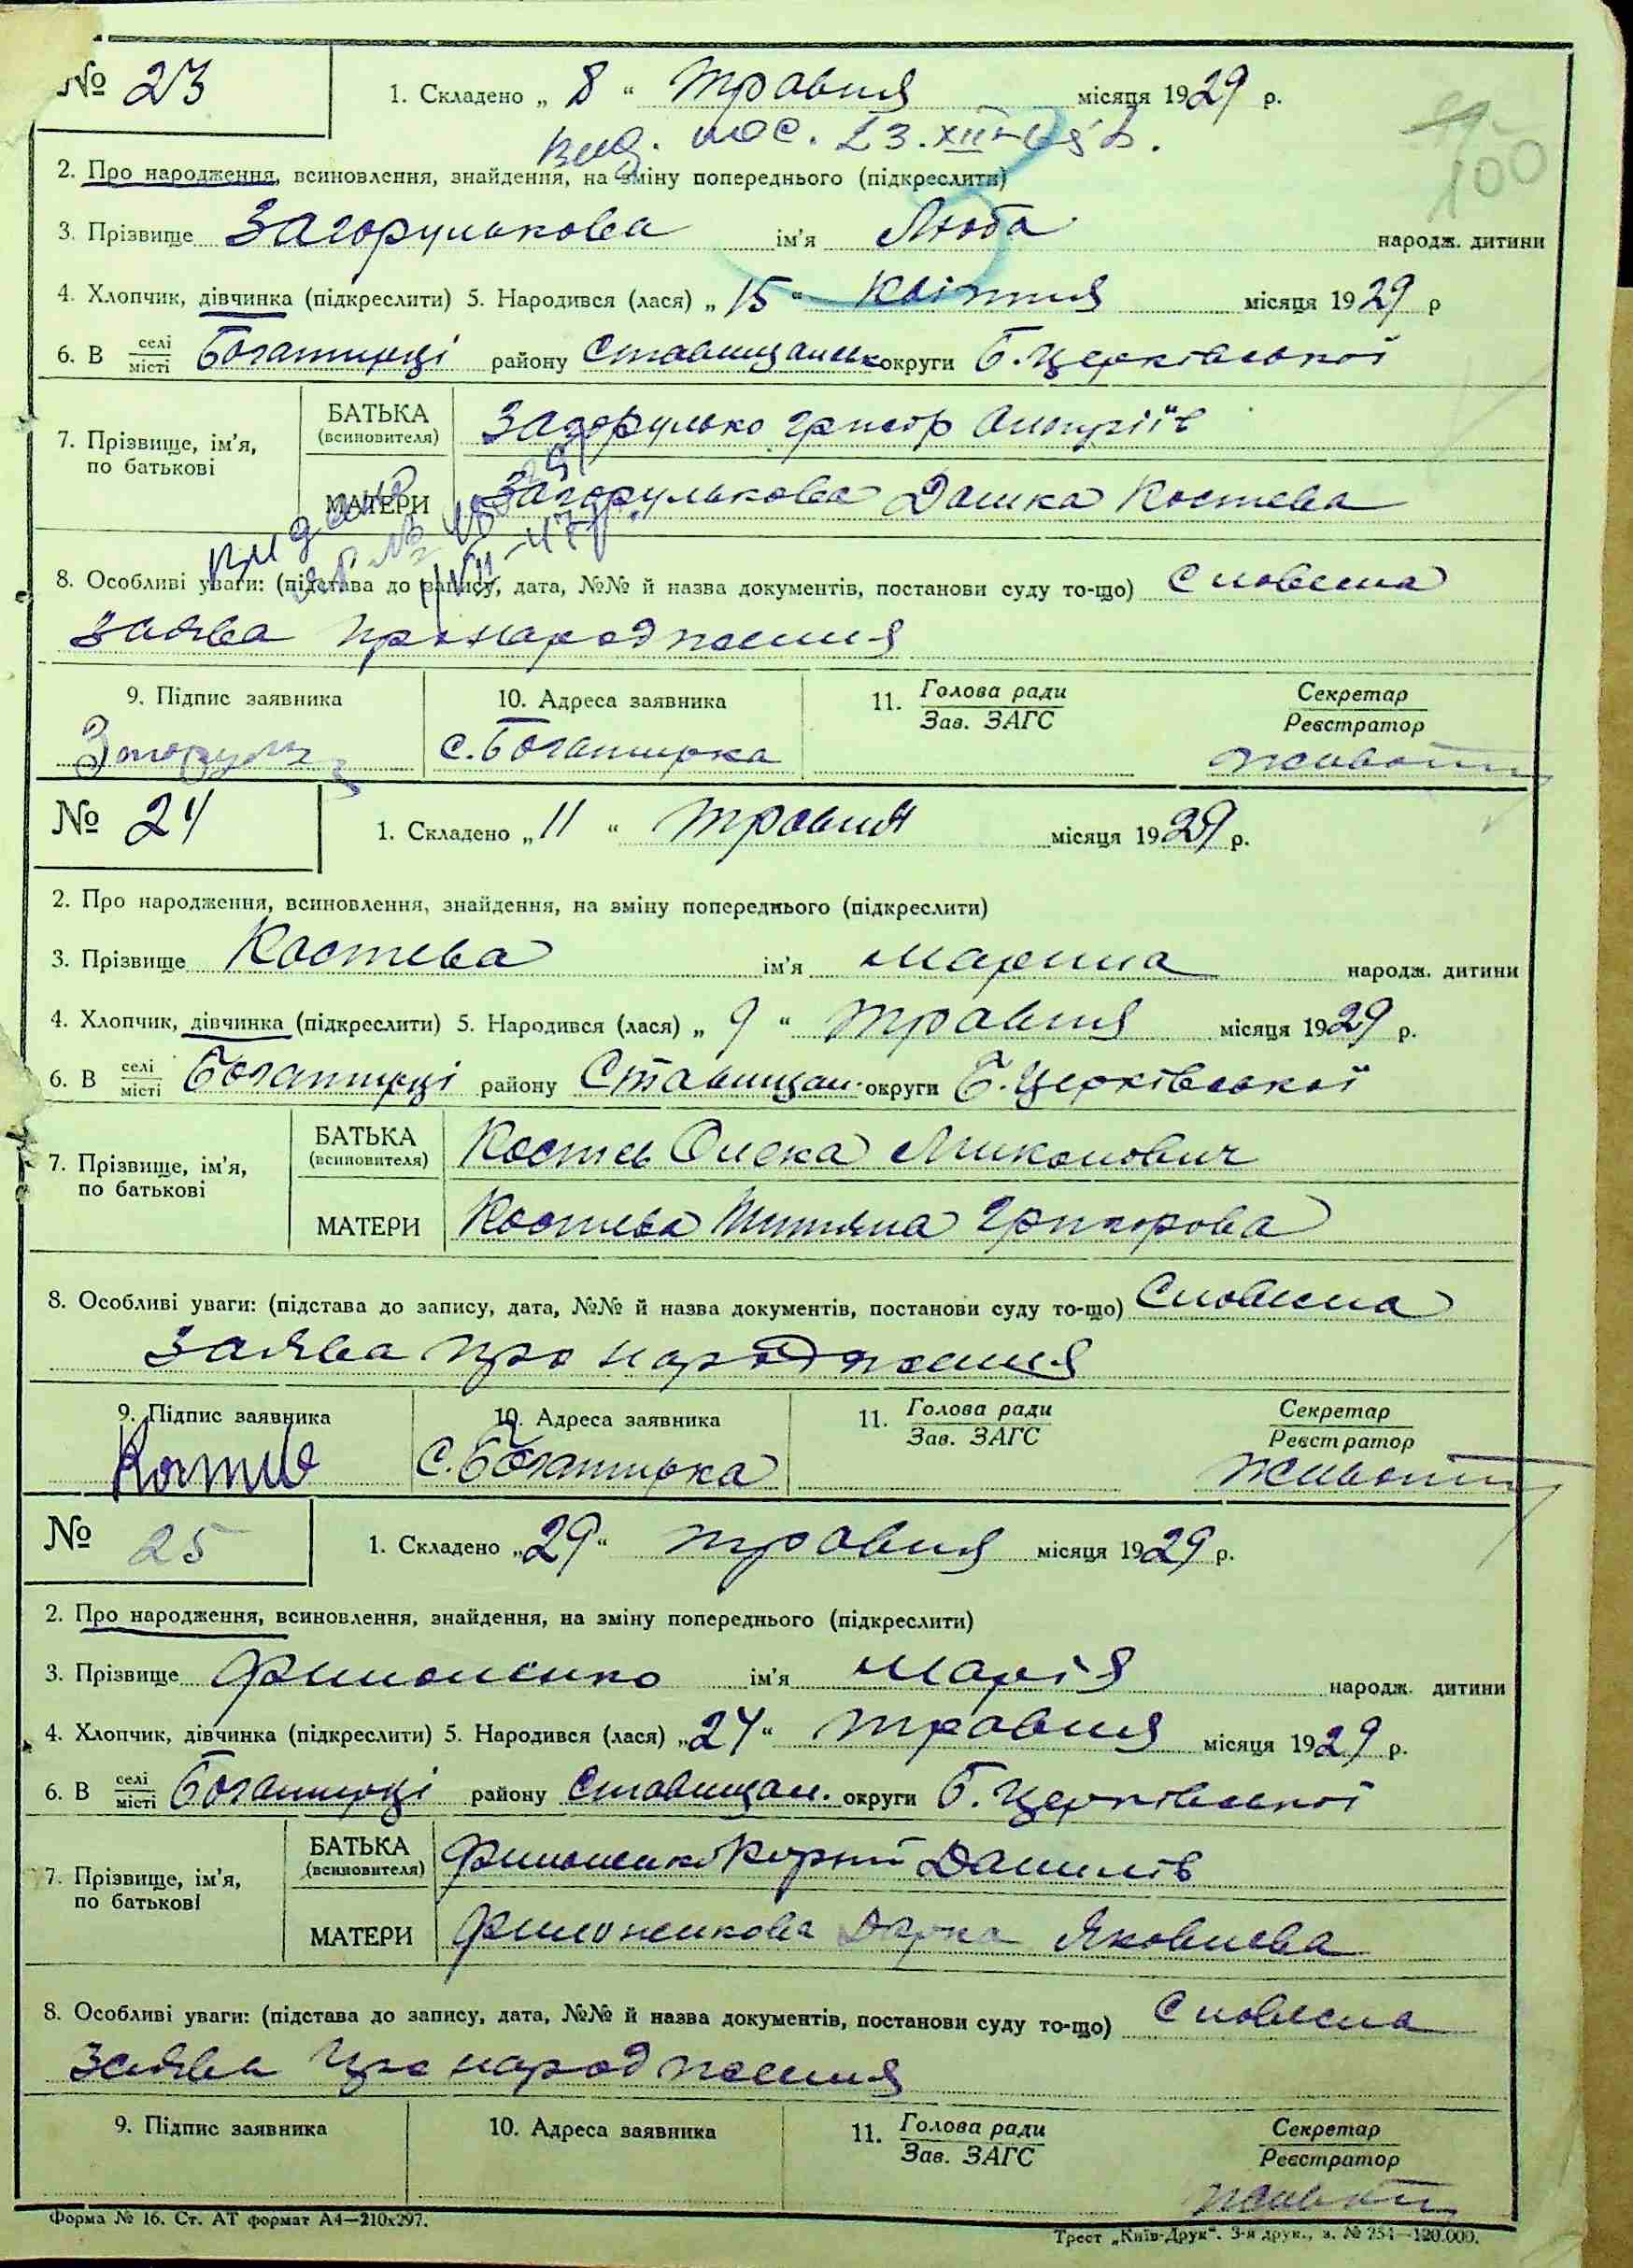 № 23
1. Складено „ 8 “ травня місяця 1929 р.
100
2. Про народження, всиновлення, знайдення, на зміну попереднього (підкреслити)
3. Прізвище Загорулькова ім’я Люба народж. дитини
4. Хлопчик, дівчинка (підкреслити) 5. Народився (лася) „ 15 “ квітня місяця 1929 р
6. В селі/місті Богатирці району Ставищанськ округи Б.Церківської
7. Прізвище, ім’я, по батькові
БАТЬКА (всиновителя) Загорулько Григор
МАТЕРИ Загорулькова Дошка Костева
видано
8. Особливі уваги: (підстава до запису, дата, №№ й назва документів, постанови суду то-що) Словесна
заява про народження
9. Підпис заявника 10. Адреса заявника 11. Голова ради/Зав. ЗАГС Секретар/Реєстратор
с. Богатирка
№ 24
1. Складено „ 11 “ травня місяця 1929 р.
2. Про народження, всиновлення, знайдення, на зміну попереднього (підкреслити)
3. Прізвище Костева ім’я Марина народж. дитини
4. Хлопчик, дівчинка (підкреслити) 5. Народився (лася) „ 9 “ травня місяця 1929 р.
6. В селі/місті Богатирці району Ставищан. округи Б.Церківської
7. Прізвище, ім’я, по батькові
БАТЬКА (всиновителя) Костев Олека
МАТЕРИ Костева Титяна Григорова
8. Особливі уваги: (підстава до запису, дата, №№ й назва документів, постанови суду то-що) Словесна
заява про народження
9. Підпис заявника 10. Адреса заявника 11. Голова ради/Зав. ЗАГС Секретар/Реєстратор
Костів с. Богатирка
№ 25
1. Складено „ 29 “ травня місяця 1929 р.
2. Про народження, всиновлення, знайдення, на зміну попереднього (підкреслити)
3. Прізвище Филоненко ім’я Марія народж. дитини
4. Хлопчик, дівчинка (підкреслити) 5. Народився (лася) „ 24 “ травня місяця 1929 р.
6. В селі/місті Богатирці району Ставищан. округи Б.Церківської
7. Прізвище, ім’я, по батькові
БАТЬКА (всиновителя) Филоненко Корній Данилів
МАТЕРИ Филоненкова Дарка Яковлева
8. Особливі уваги: (підстава до запису, дата, №№ й назва документів, постанови суду то-що) Словесна
заява про народження
9. Підпис заявника 10. Адреса заявника 11. Голова ради/Зав. ЗАГС Секретар/Реєстратор
Форма № 16. Ст. АТ формат А4—210х297.
Трест „Київ-Друк“. 3-я друк., з. № 254—120.000.